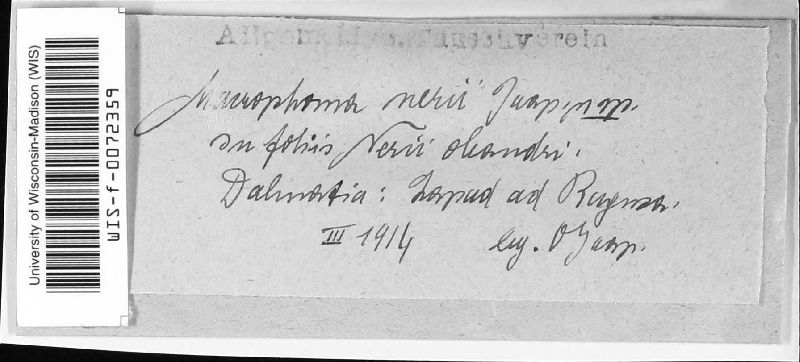 University of Wisconsin-Madison (WIS)
WIS-f-0072359
Macrophoma nerii Jaap, n. sp.
In foliis Nerii oleandri.
Dalmatia: Lapad ad Ragusa.
III 1914 leg. O Jaap.